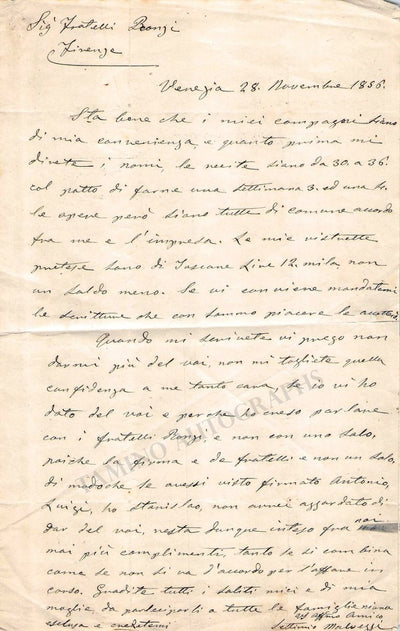 Sig.ri Fratelli Ronzi
Firenze
Venezia 28. Novembre 1856.
Sta bene che i miei compagni siano
di mia convenienza, e quanto prima mi
direte i nomi, le recite siano da 30 a 36.
col patto di farne una settimana 3. ed una 4.
le opere però siano tutte di comune accordo
fra me e l'impresa. Le mie ristrette
pretese sono di Toscane Lire 12. mila, non
un soldo meno. Se vi conviene mandatemi
le scritture che con sommo piacere le accetterò
Quando mi scrivete vi prego non
darmi più del voi, non mi togliete quella
confidenza a me tanto cara, se io vi ho
dato del voi è perchè ho inteso parlare
con i fratelli Ronzi e non con uno solo,
poichè la firma è de fratelli e non un solo,
di modochè se avessi visto firmato Antonio,
Luigi, ho Stanislao, non avrei azzardato di
dar del voi, resta dunque inteso fra noi
mai più complimenti, tanto se si combina
come se non si va d'accordo per l'affare in
corso. Gradite tutti i saluti miei e di mia
moglie, da parteciparli a tutte le famiglie niuna
esclusa e credetemi
vo affmo Amico
Settimio Malvezzi
TAMINO AUTOGRAPHS